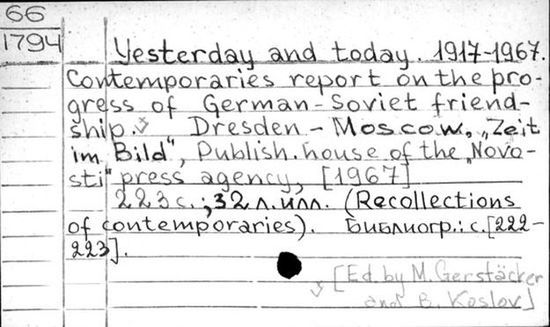 66
1794
Yesterday and today. 1917-1967.
Contemporaries report on the pro-
gress of German-Soviet friend-
ship. Dresden - Moscow, „Zeit
im Bild", Publish. house of the „Novo-
sti" press agency, [1967]
223 с.; 32 л. илл. (Recollections
of contemporaries). Библиогр.: с. [222-
223].
[Ed. by M. Gerstäcker
and B. Koslov]